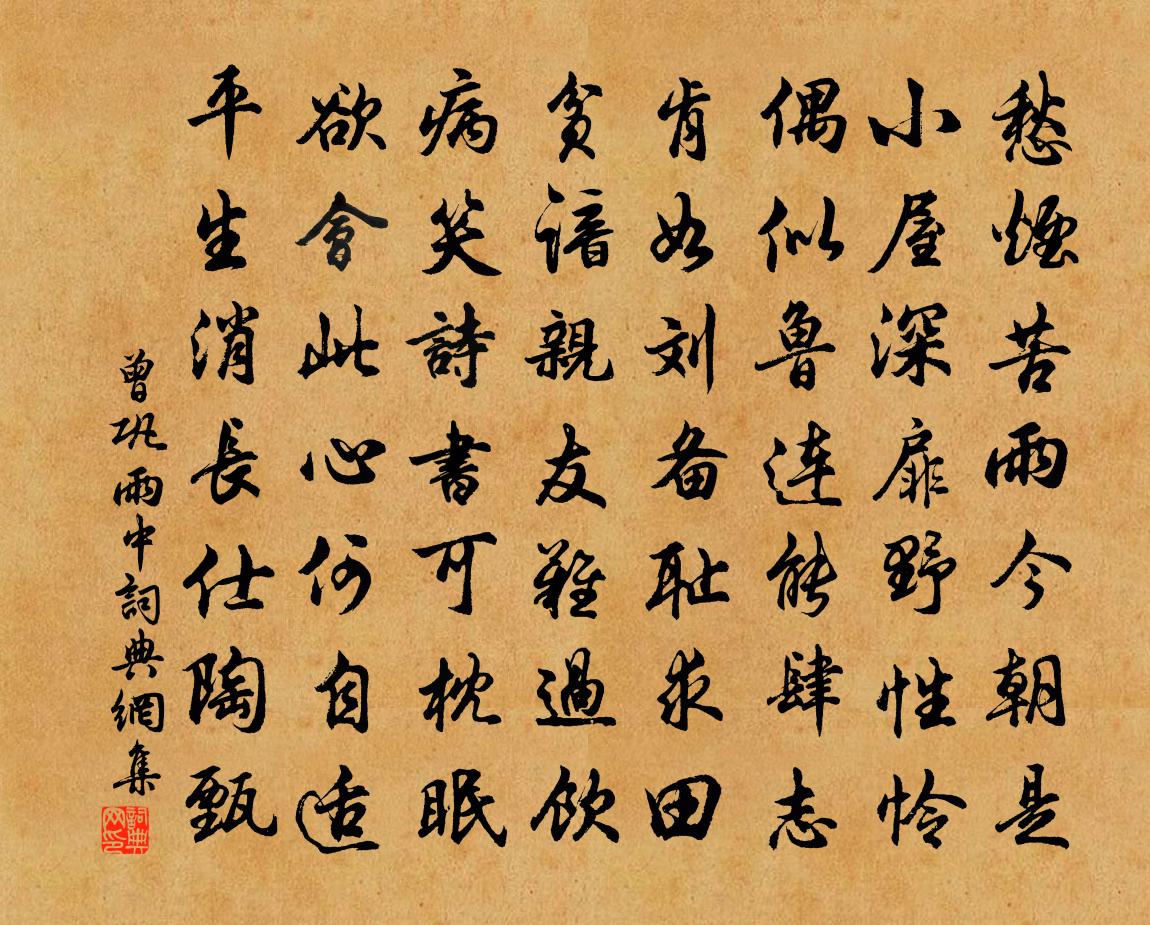 愁煙苦雨今朝是
小屋深扉野性怜
偶似魯連能肆志
肯如刘备耻求田
貧諳親友難過飲
病笑詩書可枕眠
欲會此心何自适
平生消長仕陶甄
曾巩雨中詞典網集
詞典网印